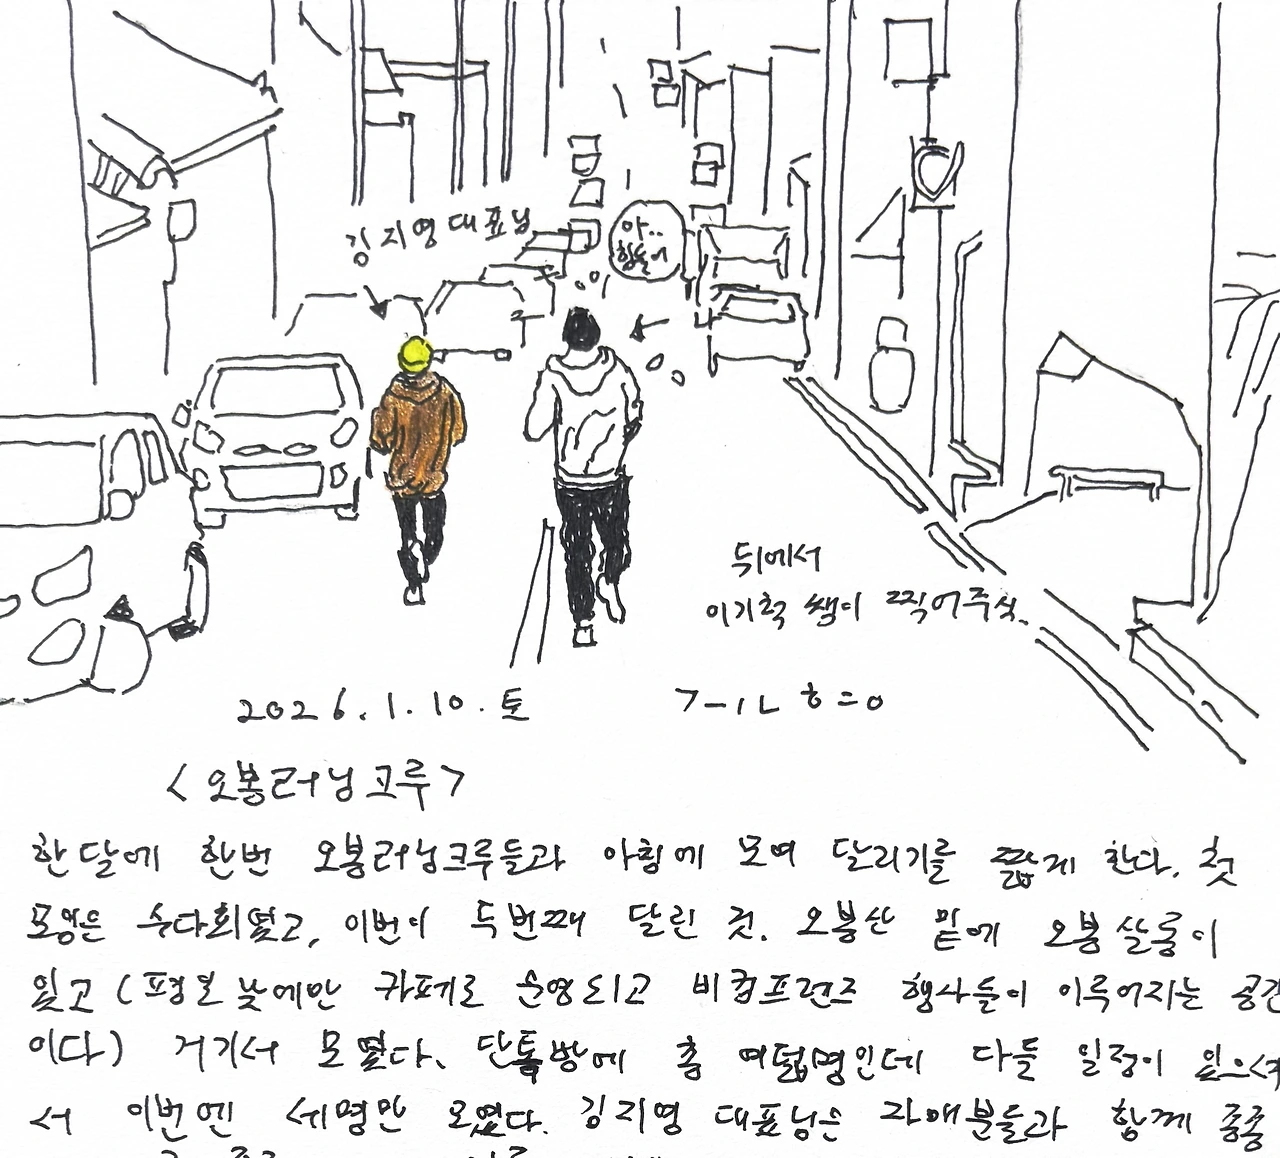 김지영 대표님
아..
힘들어
뒤에서
이기혁 쌤이 찍어주심.
2026.1.10.토
ㄱㅡㅣㄴ ㅎㅡㅇ
<오봉러닝크루>
한달에 한번 오봉러닝크루들과 아침에 모여 달리기를 짧게 한다. 첫
모임은 수다회였고, 이번이 두번째 달린 것. 오봉산 밑에 오봉살롱이
있고 (평일 낮에만 카페로 운영되고 비컴프렌즈 행사들이 이루어지는 공간
이다) 거기서 모였다. 단톡방에 총 여덟명인데 다들 일정이 있으셔
서 이번엔 세명만 모였다. 김지영 대표님은 자애분들과 함께 종종